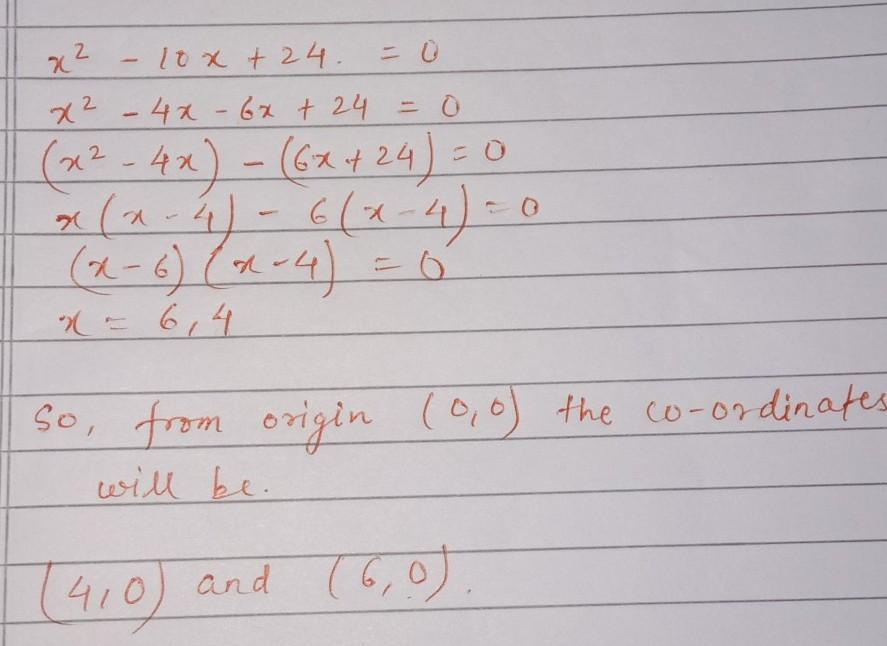 x² - 10x + 24. = 0
x² - 4x - 6x + 24 = 0
(x² - 4x) - (6x + 24) = 0
x(x - 4) - 6(x - 4) = 0
(x - 6)(x - 4) = 0
x = 6, 4
So, from origin (0,0) the co-ordinates
will be.
(4,0) and (6,0).